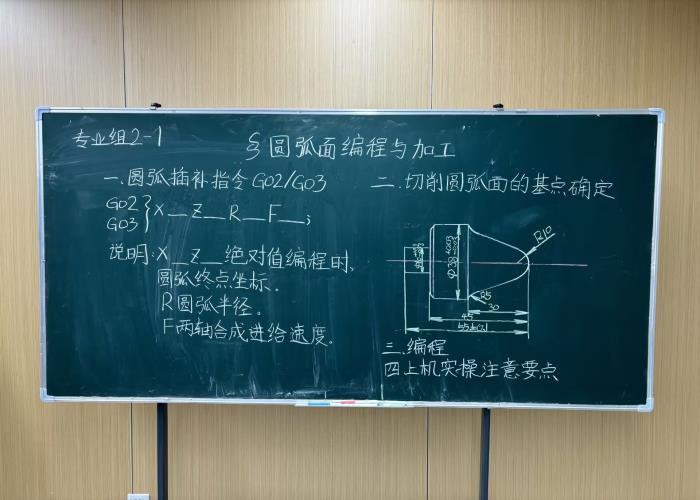 专业组2-1
§圆弧面编程与加工
一.圆弧插补指令G02/G03
G02
G03
}X__Z__R__F__;
说明:X__Z__绝对值编程时,
圆弧终点坐标.
R圆弧半径。
F两轴合成进给速度.
二.切削圆弧面的基点确定
R10
R5
30
45
55±0.1
三.编程
四上机实操注意要点